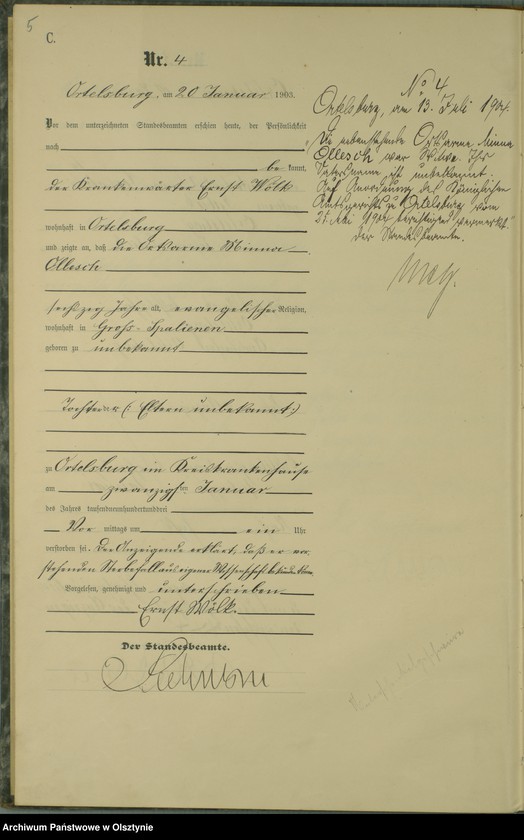 5
C.
Nr. 4
Ortelsburg, am 20 Januar 1903.
Vor dem unterzeichneten Standesbeamten erschien heute, der Persönlichkeit
nach
be kannt,
der Krankenwärter Ernst Wölk
wohnhaft in Ortelsburg
und zeigte an, daß die Ortsarme Minna
Ollesch
sechszig Jahre alt, evangelischer Religion,
wohnhaft in Groß-Spalienen
geboren zu unbekannt
Tochter (: Eltern unbekannt :)
zu Ortelsburg im Kreiskrankenhause
am zwanzigsten Januar
des Jahres tausendneunhundertunddrei
Vor mittags um ein Uhr
verstorben sei. Der Anzeigende erklärt, daß er vor-
stehenden Sterbefall aus eigener Wissenschaft bekunden könne.
Vorgelesen, genehmigt und unterschrieben
Ernst Wölk.
Der Standesbeamte.
No 4
Ortelsburg, am 13. Juli 1904.
Die nebenstehende Ortsarme Minna
Ollesch war Witwe. Ihr
ist unbekannt.
Auf Anordnung des Königlichen
Amtsgerichts zu Ortelsburg vom
25. Mai 1904 vermerkt.
Der Standesbeamte.
Archiwum Państwowe w Olsztynie